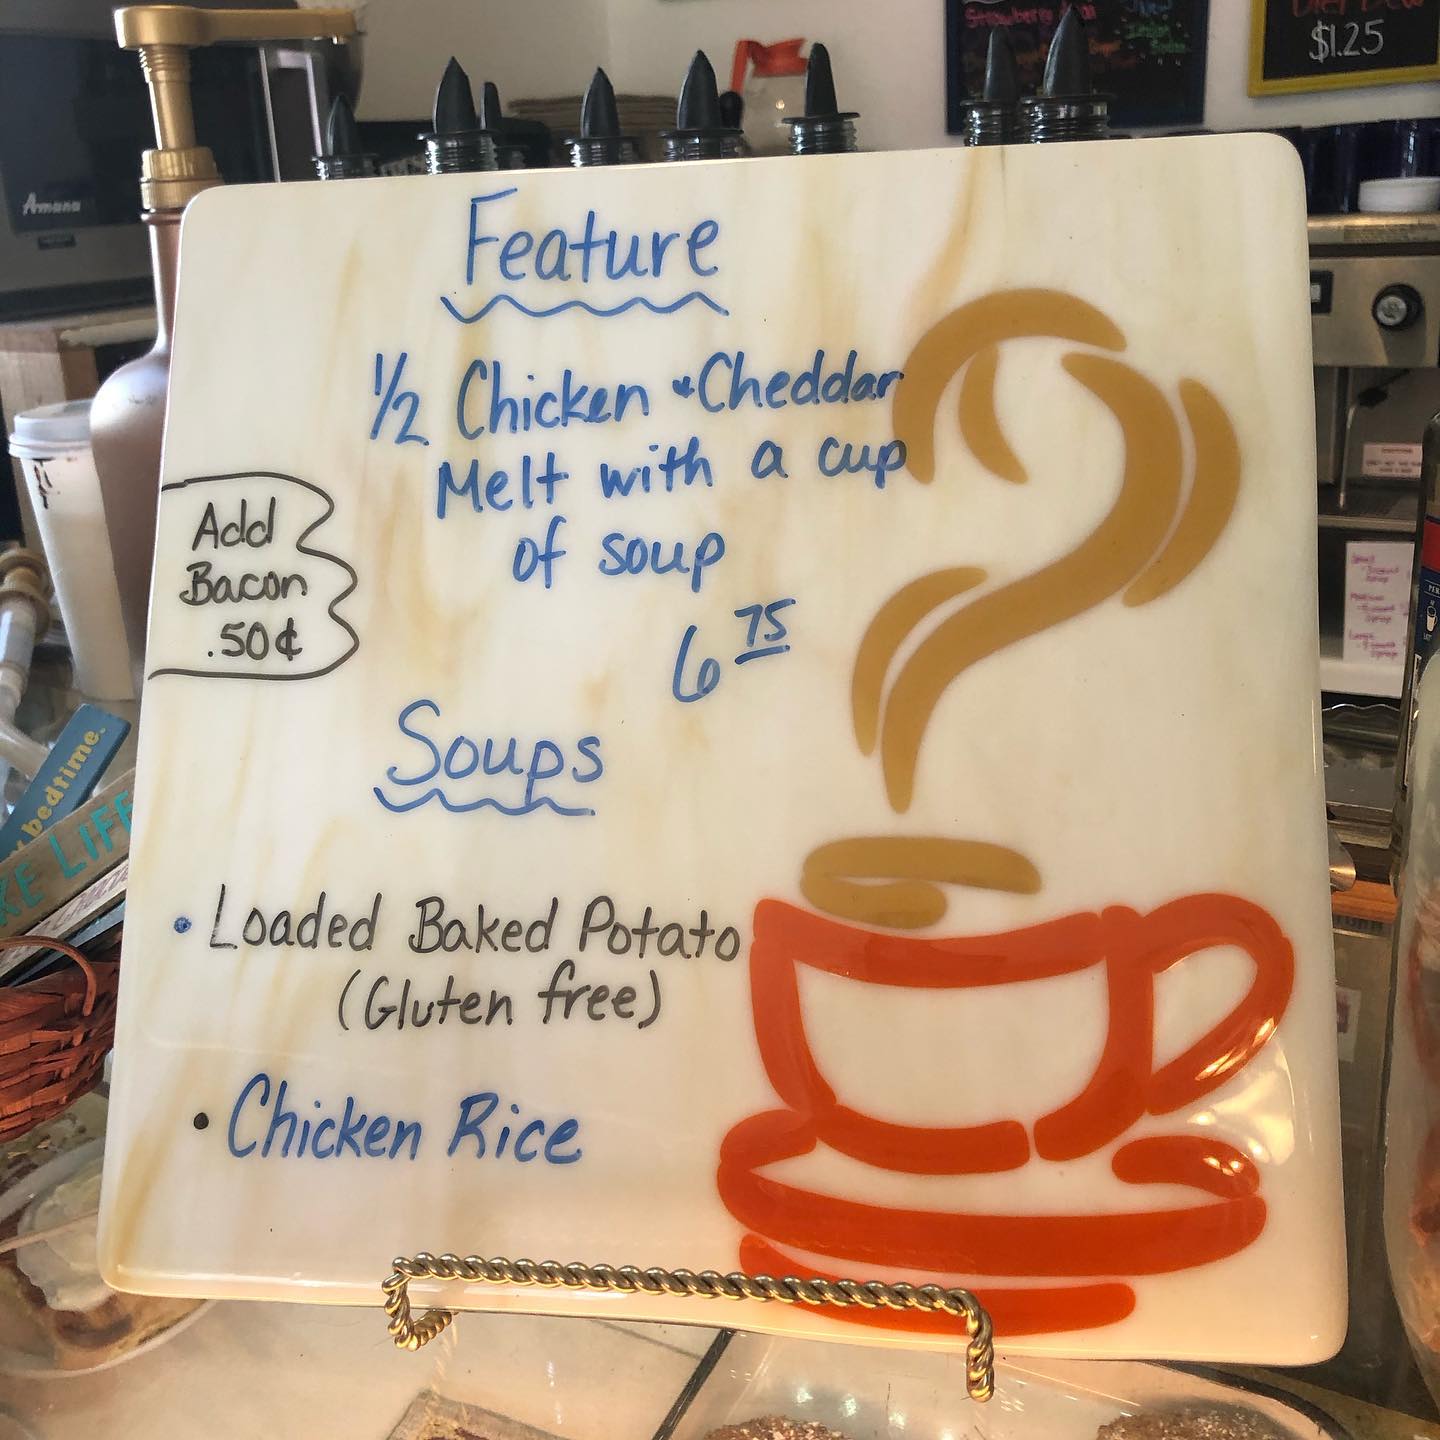 Feature
1/2 Chicken + Cheddar
Melt with a cup
of soup
6 75
Add
Bacon
.50¢
Soups
• Loaded Baked Potato
(Gluten free)
• Chicken Rice
Amana
$1.25
bedtime.